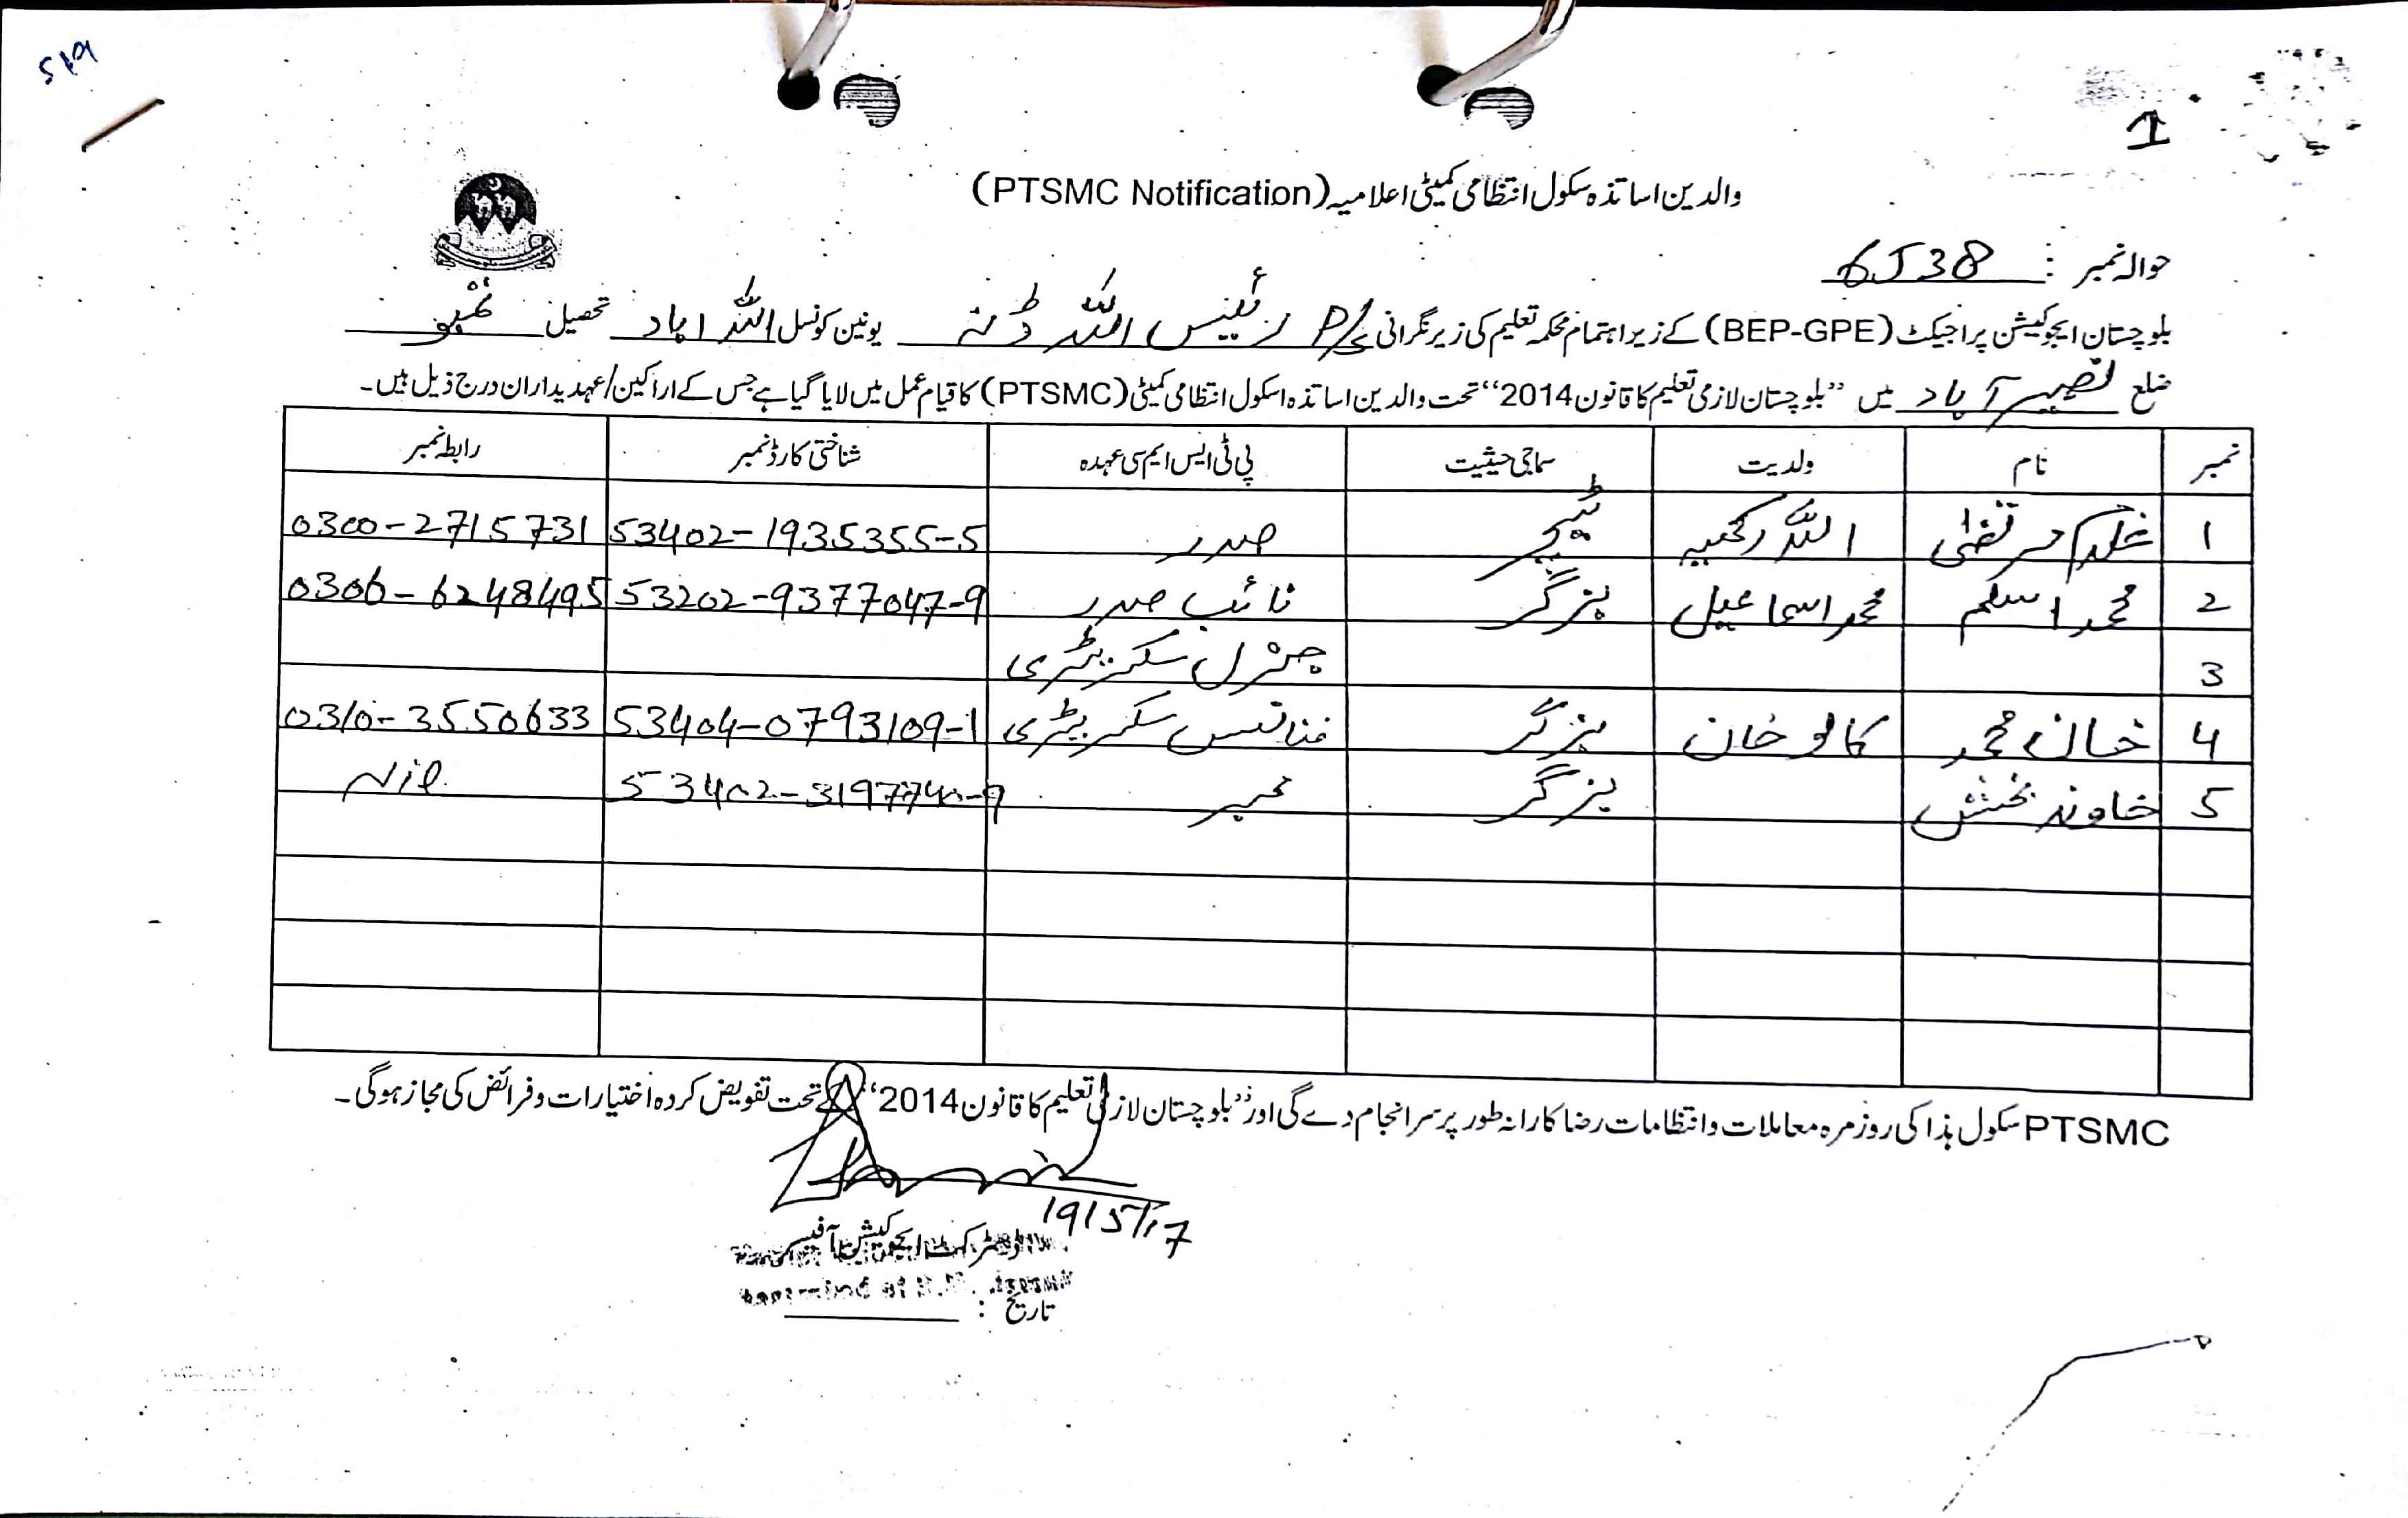 519
1
والدین اساتذہ سکول انتظامی کمیٹی اعلامیہ (PTSMC Notification)
حوالہ نمبر : 6538
بلوچستان ایجوکیشن پراجیکٹ (BEP-GPE) کے زیر اہتمام محکمہ تعلیم کی زیر نگرانی P/S رئیس اللہ ڈنہ یونین کونسل اللہ آباد تحصیل تمبو
ضلع نصیر آباد میں "بلوچستان لازمی تعلیم کا قانون 2014" تحت والدین اساتذہ اسکول انتظامی کمیٹی (PTSMC) کا قیام عمل میں لایا گیا ہے جس کے اراکین/عہدیداران درج ذیل ہیں۔
نمبر نام ولدیت سماجی حیثیت پی ٹی ایس ایم سی عہدہ شناختی کارڈ نمبر رابطہ نمبر
1 غلام مرتضیٰ اللہ رکھیہ ٹیچر صدر 53402-1935355-5 0300-2715731
2 محمد اسلم محمد اسماعیل بزگر نائب صدر 53202-9377047-9 0306-6248495
3 جنرل سکریٹری
4 خان محمد کالو خان بزگر فنانس سکریٹری 53404-0793109-1 0310-3550633
5 خاوند بخش بزگر ممبر 53402-3197740-9 Nil
PTSMC سکول ہذا کی روزمرہ معاملات و انتظامات رضاکارانہ طور پر سرانجام دے گی اور "بلوچستان لازمی تعلیم کا قانون 2014" کے تحت تفویض کردہ اختیارات و فرائض کی مجاز ہوگی۔
19/5/17
ڈسٹرکٹ ایجوکیشن آفیسر
تاریخ :